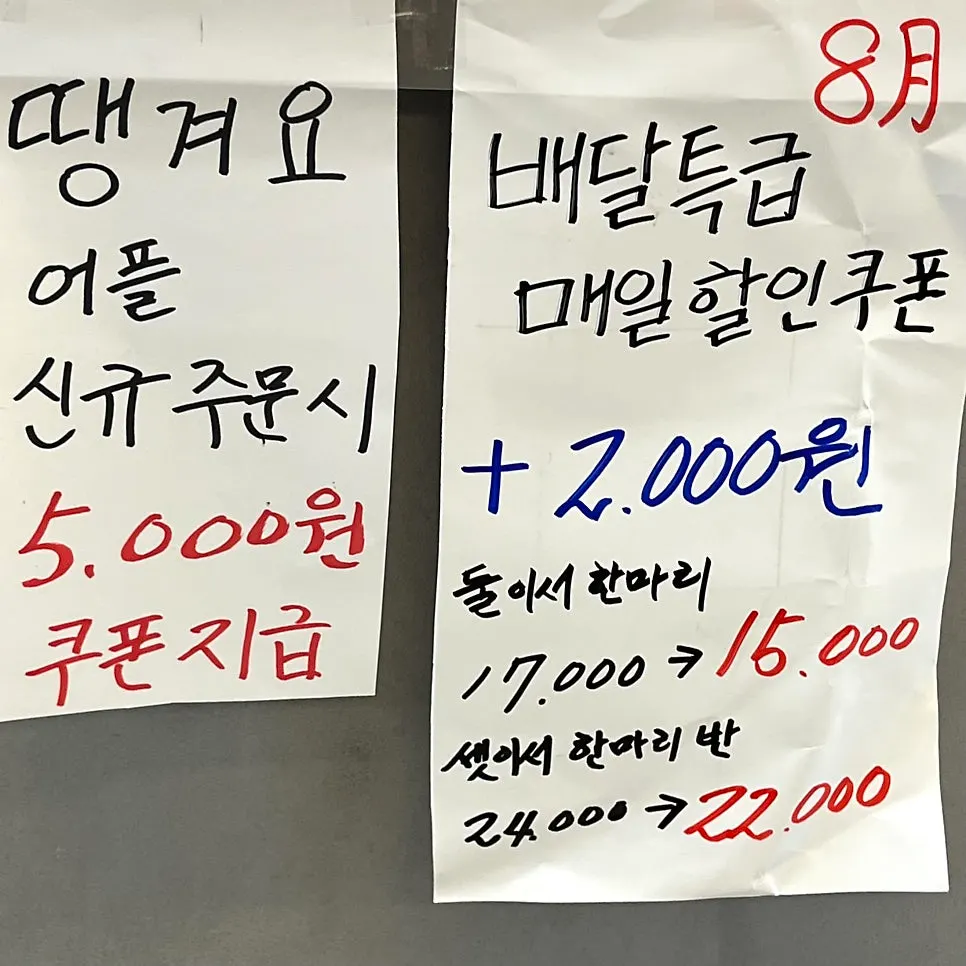 땡겨요
어플
신규 주문시
5.000원
쿠폰지급
8月
배달특급
매일할인쿠폰
+ 2.000원
둘이서 한마리
17.000 → 15.000
셋이서 한마리 반
24.000 → 22.000